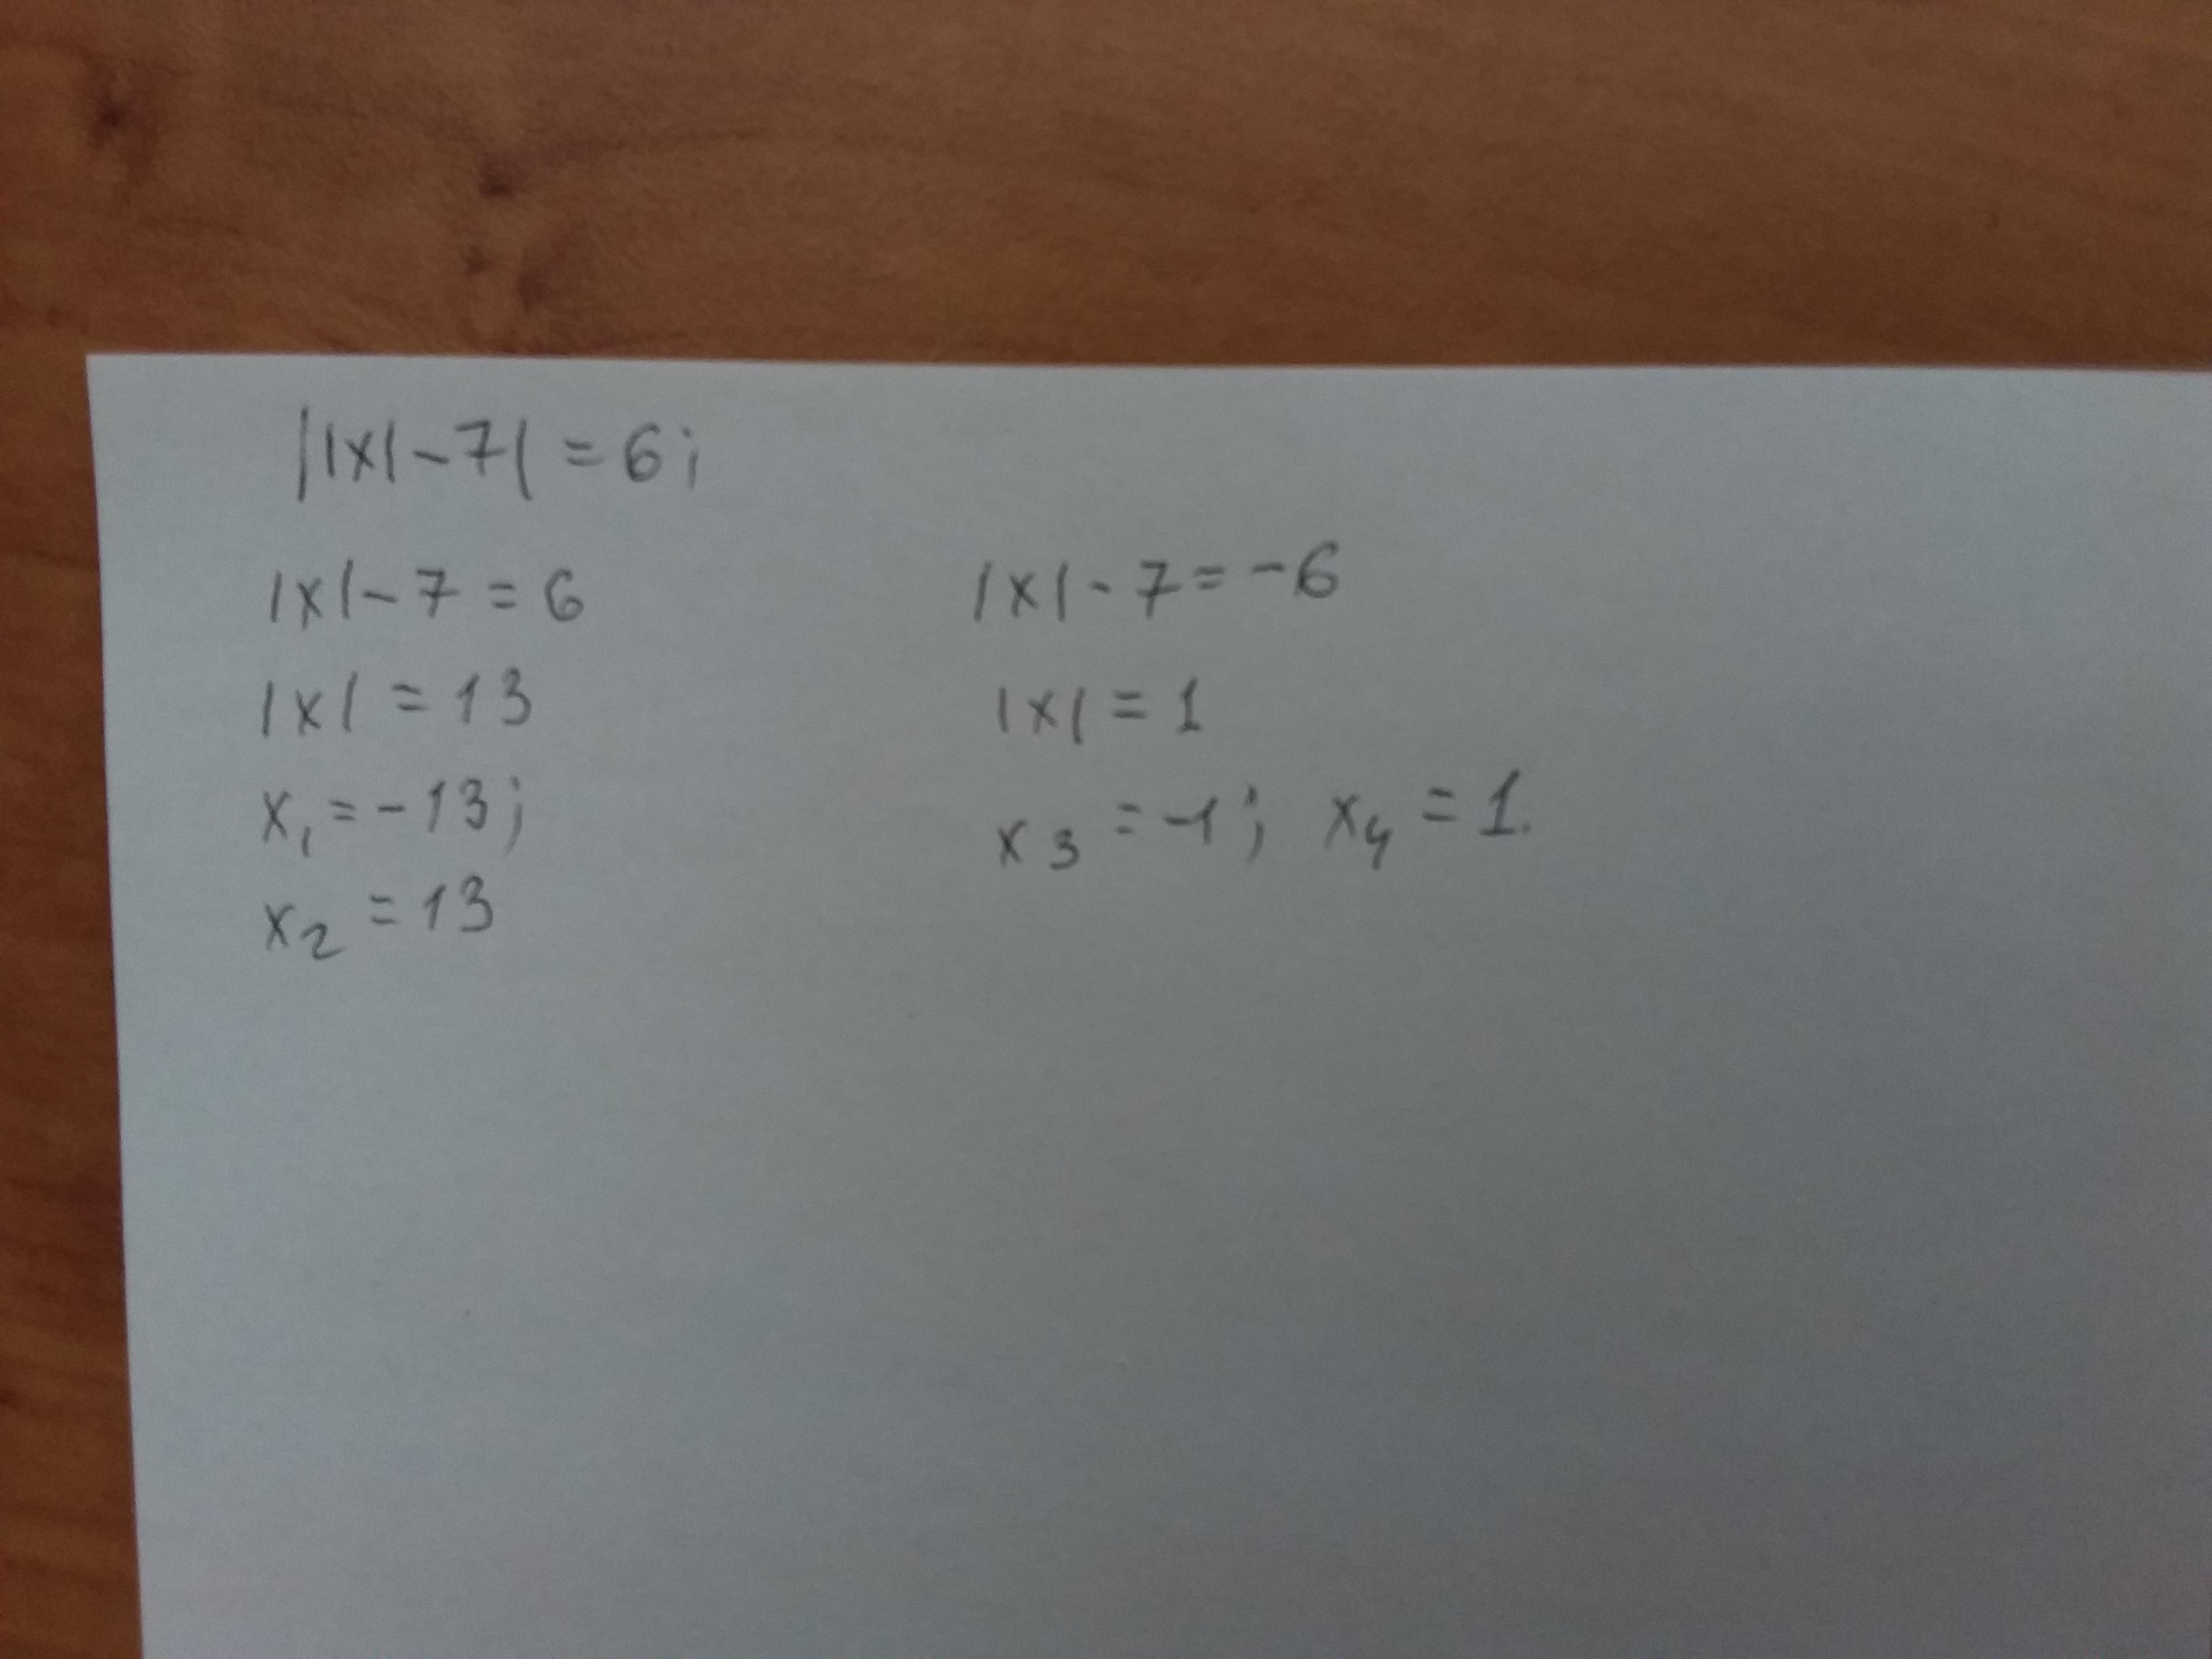 ||x|-7| = 6;
|x|-7 = 6
|x| = 13
x₁ = -13;
x₂ = 13
|x|-7 = -6
|x| = 1
x₃ = -1; x₄ = 1.